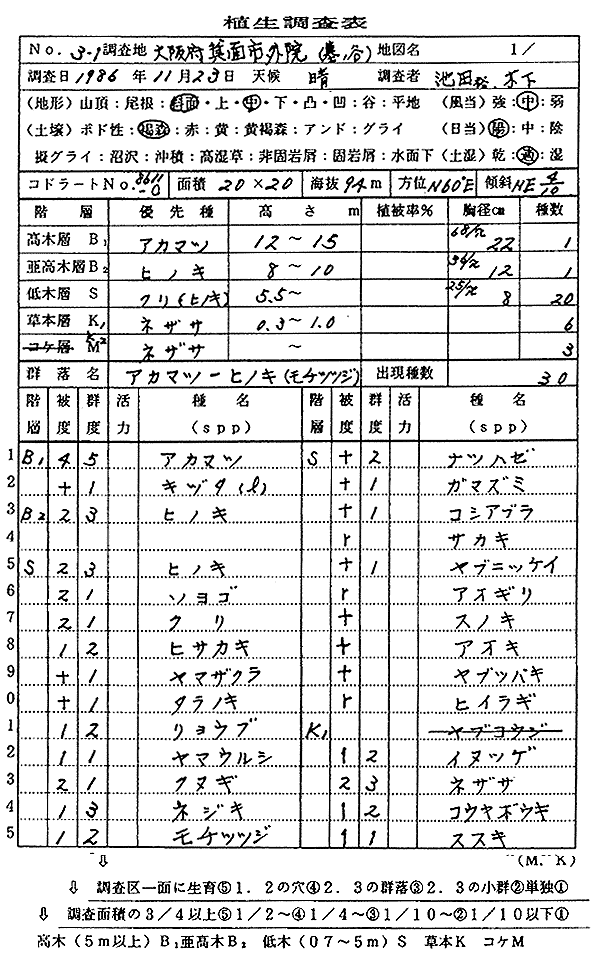 植生調査表
No. 3-1 調査地 大阪府箕面市外院(墓谷) 地図名 1/
調査日 1986 年 11月 23日 天候 晴 調査者 池田裕、木下
(地形) 山頂:尾根:斜面・上・中・下・凸・凹:谷:平地 (風当) 強:中:弱
(土壌) ポド性:褐森:赤:黄:黄褐森:アンド:グライ (日当) 陽:中:陰
擬グライ:沼沢:沖積:高湿草:非固岩屑:固岩屑:水面下 (土湿) 乾:適:湿
コドラートNo. 8611-0 面積 20×20 海抜 94m 方位 N60°E 傾斜 NE 4/10
階層 優先種 高さ m 植被率% 胸径㎝ 種数
高木層 B₁ アカマツ 12~15 68/π 22 1
亜高木層 B₂ ヒノキ 8~10 36/π 12 1
低木層 S クリ(ヒノキ) 5.5~ 25/π 8 20
草本層 K₁ ネザサ 0.3~1.0 6
コケ層 M K₂ ネザサ ~ 3
群落名 アカマツ-ヒノキ(モチツツジ) 出現種数 30
階層 被度 群度 活力 種名(spp) 階層 被度 群度 活力 種名(spp)
1 B₁ 4 5 アカマツ S + 2 ナツハゼ
2 + 1 キヅタ(l) + 1 ガマズミ
3 B₂ 2 3 ヒノキ + 1 コシアブラ
4 r サカキ
5 S 2 3 ヒノキ + 1 ヤブニッケイ
6 2 1 ソヨゴ r アオギリ
7 2 1 クリ + スノキ
8 1 2 ヒサカキ + アオキ
9 + 1 ヤマザクラ + ヤブツバキ
0 + 1 タラノキ r ヒイラギ
1 1 2 リョウブ K₁ ヤブコウジ
2 1 1 ヤマウルシ 1 2 イヌツゲ
3 2 1 クヌギ 2 3 ネザサ
4 1 3 ネジキ 1 2 コウヤボウキ
5 1 2 モチツツジ 1 1 ススキ
⇩ (M. K)
⇩ 調査区一面に生育⑤1.2の穴④2.3の群落③2.3の小群②単独①
⇩ 調査面積の3/4以上⑤1/2~④1/4~③1/10~②1/10以下①
高木(5m以上)B₁亜高木B₂ 低木(07~5m)S 草本K コケM